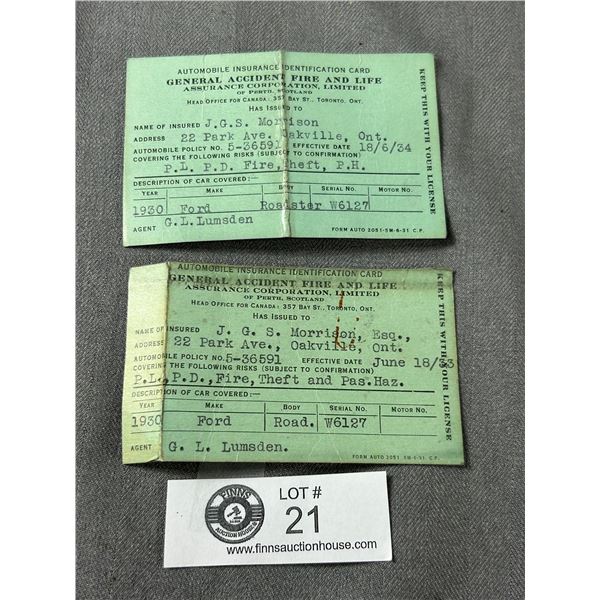 AUTOMOBILE INSURANCE IDENTIFICATION CARD
GENERAL ACCIDENT FIRE AND LIFE
ASSURANCE CORPORATION, LIMITED
OF PERTH, SCOTLAND
HEAD OFFICE FOR CANADA: 357 BAY ST., TORONTO, ONT.
HAS ISSUED TO
NAME OF INSURED J.G.S. Morrison
ADDRESS 22 Park Ave. Oakville, Ont.
AUTOMOBILE POLICY NO. 5-36591 EFFECTIVE DATE 18/6/34
COVERING THE FOLLOWING RISKS (SUBJECT TO CONFIRMATION)
P.L. P.D. Fire, Theft, P.H.
DESCRIPTION OF CAR COVERED:
YEAR MAKE BODY SERIAL NO. MOTOR NO.
1930 Ford Roadster W6127
AGENT G.L.Lumsden
FORM AUTO 2051-5M-6-31 C.P.
KEEP THIS WITH YOUR LICENSE
AUTOMOBILE INSURANCE IDENTIFICATION CARD
GENERAL ACCIDENT FIRE AND LIFE
ASSURANCE CORPORATION, LIMITED
OF PERTH, SCOTLAND
HEAD OFFICE FOR CANADA: 357 BAY ST., TORONTO, ONT.
HAS ISSUED TO
NAME OF INSURED J. G. S. Morrison, Esq.,
ADDRESS 22 Park Ave., Oakville, Ont.
AUTOMOBILE POLICY NO. 5-36591 EFFECTIVE DATE June 18/33
COVERING THE FOLLOWING RISKS (SUBJECT TO CONFIRMATION)
P.L.,P.D.,Fire, Theft and Pas.Haz.
DESCRIPTION OF CAR COVERED:
YEAR MAKE BODY SERIAL NO. MOTOR NO.
1930 Ford Road. W6127
AGENT G. L. Lumsden.
FORM AUTO 2051 5M-6-31 C.P.
KEEP THIS WITH YOUR LICENSE
FINNS
AUCTION HOUSE
LOT #
21
www.finnsauctionhouse.com